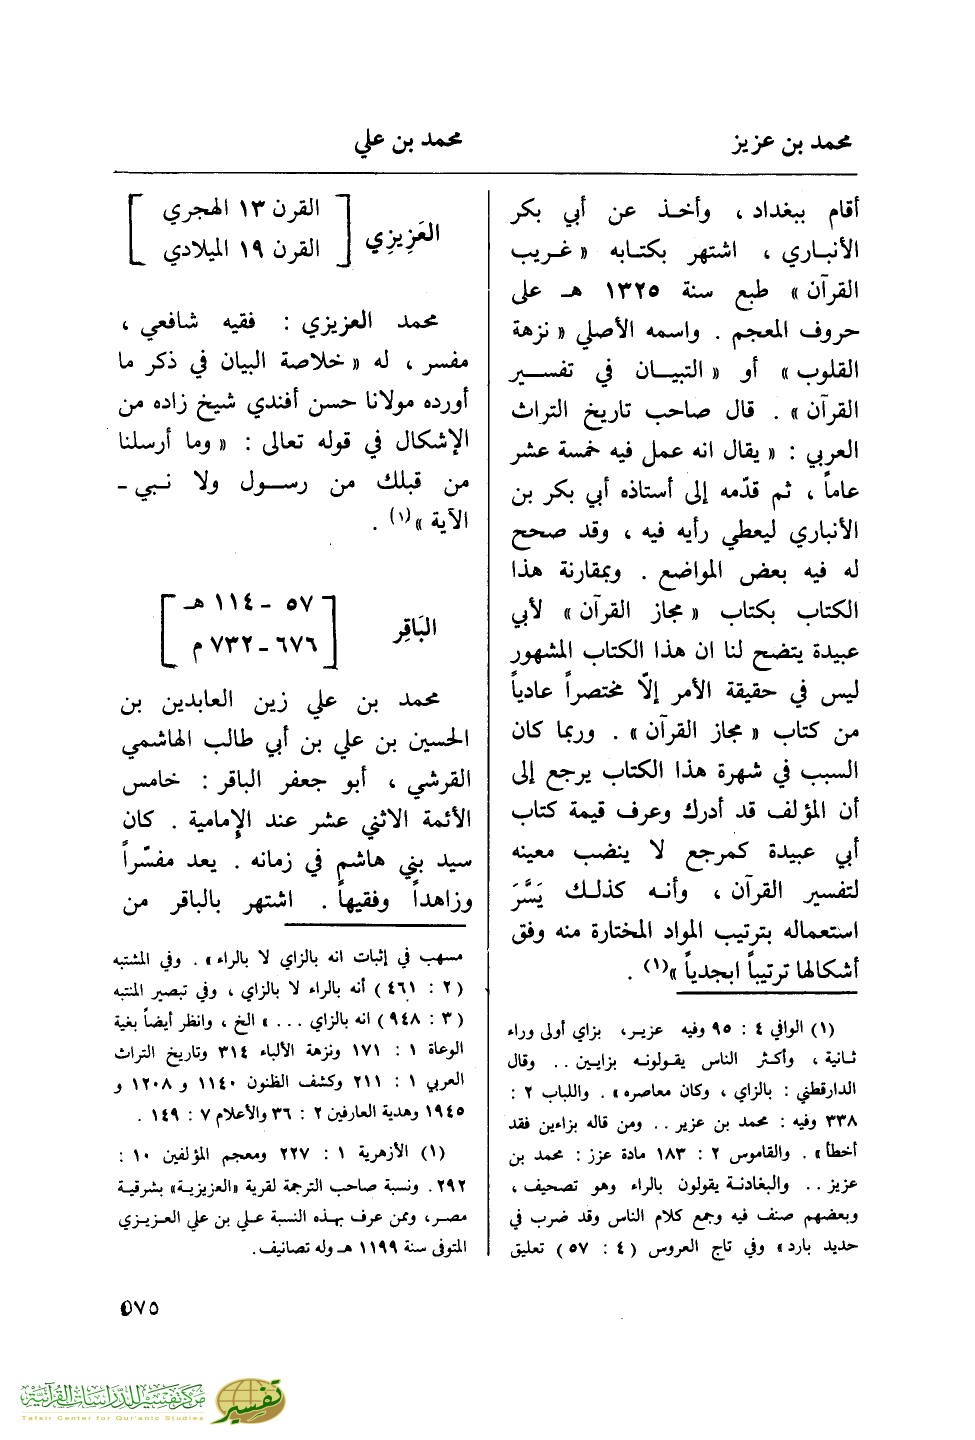 محمد بن عزيز
محمد بن علي
أقام ببغداد ، وأخذ عن أبي بكر
الأنباري ، اشتهر بكتابه « غريب
القرآن » طبع سنة ١٣٢٥ هـ على
حروف المعجم . واسمه الأصلي « نزهة
القلوب » أو « التبيان في تفسير
القرآن » . قال صاحب تاريخ التراث
العربي : « يقال انه عمل فيه خمسة عشر
عاماً ، ثم قدّمه إلى أستاذه أبي بكر بن
الأنباري ليعطي رأيه فيه ، وقد صحح
له فيه بعض المواضع . وبمقارنة هذا
الكتاب بكتاب « مجاز القرآن » لأبي
عبيدة يتضح لنا ان هذا الكتاب المشهور
ليس في حقيقة الأمر إلاّ مختصراً عادياً
من كتاب « مجاز القرآن » . وربما كان
السبب في شهرة هذا الكتاب يرجع إلى
أن المؤلف قد أدرك وعرف قيمة كتاب
أبي عبيدة كمرجع لا ينضب معينه
لتفسير القرآن ، وأنه كذلك يَسَّرَ
استعماله بترتيب المواد المختارة منه وفق
أشكالها ترتيباً ابجدياً »(١) .
(١) الوافي ٤ : ٩٥ وفيه عزير، بزاي أولى وراء
ثانية ، وأكثر الناس يقولونه بزايين .. وقال
الدارقطني : بالزاي ، وكان معاصره » . واللباب ٢ :
٣٣٨ وفيه : محمد بن عزير .. ومن قاله بزاءين فقد
أخطأ » . والقاموس ٢ : ١٨٣ مادة عزز : محمد بن
عزيز .. والبغادنة يقولون بالراء وهو تصحيف ،
وبعضهم صنف فيه وجمع كلام الناس وقد ضرب في
حديد بارد » وفي تاج العروس ( ٤ : ٥٧ ) تعليق
العَزِيزِي
[ القرن ١٣ الهجري
القرن ١٩ الميلادي ]
محمد العزيزي : فقيه شافعي ،
مفسر ، له « خلاصة البيان في ذكر ما
أورده مولانا حسن أفندي شيخ زاده من
الإشكال في قوله تعالى : « وما أرسلنا
من قبلك من رسول ولا نبي -
الآية »(١) .
البَاقِر
[ ٥٧ - ١١٤ هـ
٦٧٦ - ٧٣٢ م ]
محمد بن علي زين العابدين بن
الحسين بن علي بن أبي طالب الهاشمي
القرشي ، أبو جعفر الباقر : خامس
الأئمة الاثني عشر عند الإمامية . كان
سيد بني هاشم في زمانه . يعد مفسّراً
وزاهداً وفقيهاً . اشتهر بالباقر من
مسهب في إثبات انه بالزاي لا بالراء » . وفي المشتبه
( ٢ : ٤٦١ ) أنه بالراء لا بالزاي ، وفي تبصير المنتبه
( ٣ : ٩٤٨ ) انه بالزاي ... » الخ ، وانظر أيضاً بغية
الوعاة ١ : ١٧١ ونزهة الألباء ٣١٤ وتاريخ التراث
العربي ١ : ٢١١ وكشف الظنون ١١٤٠ و ١٢٠٨ و
١٩٤٥ وهدية العارفين ٢ : ٣٦ والأعلام ٧ : ١٤٩ .
(١) الأزهرية ١ : ٢٢٧ ومعجم المؤلفين ١٠ :
٢٩٢. ونسبة صاحب الترجمة لقرية «العزيزية» بشرقية
مصر، وممن عرف بهذه النسبة علي بن علي العزيزي
المتوفى سنة ١١٩٩ هـ وله تصانيف.
٥٧٥
مركز تفسير للدراسات القرآنية
Tafsir Center for Qur'anic Studies
تفسير